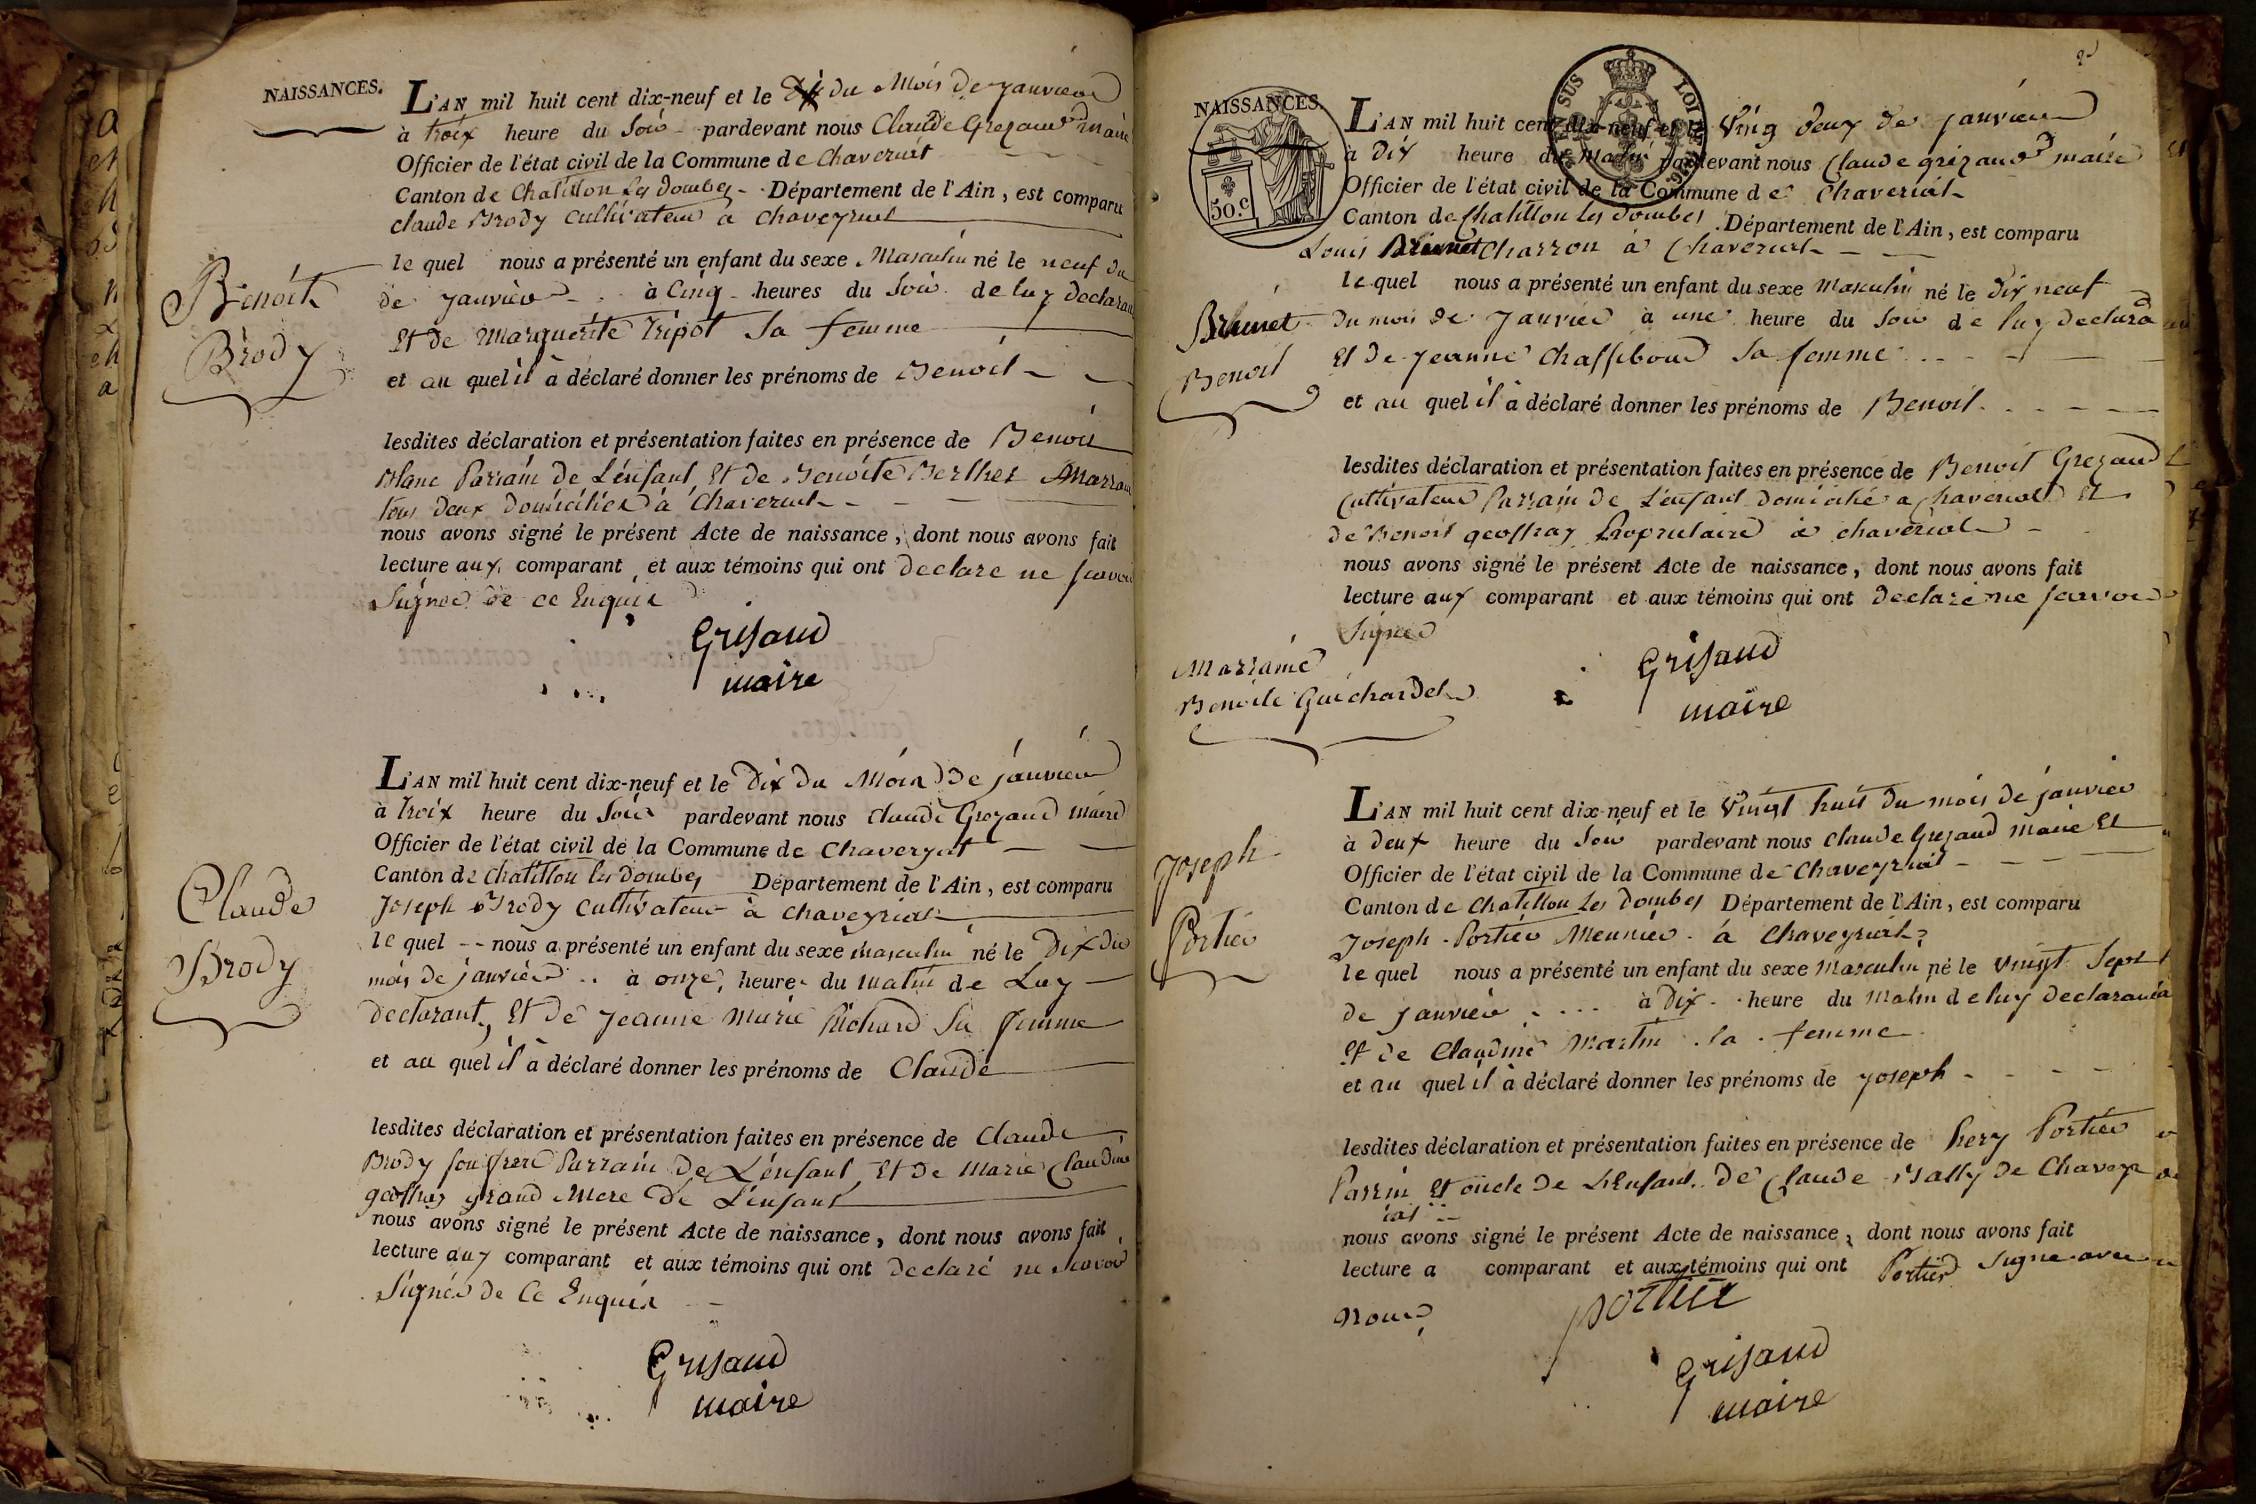 NAISSANCES.
L'AN mil huit cent dix-neuf et le Dix du Mois de janvier
à troix heure du Soir pardevant nous Claude Grezaud maire
Officier de l'état civil de la Commune de Chaveriat
Canton de Chatillon les dombes Département de l'Ain, est comparu
claude Brody cultivateur a chaveyriat
le quel nous a présenté un enfant du sexe Masculin né le neuf du
de janvier à Cinq heures du Soir de luy declarant
Et de Marguerite Tripot Sa femme
et au quel il à déclaré donner les prénoms de Benoit
Benoit
Brody
lesdites déclaration et présentation faites en présence de Benoit
Blanc Parrain de L'enfant Et de Benoite Berthet Marraine
tous deux domiciliés à Chaveriat
nous avons signé le présent Acte de naissance, dont nous avons fait
lecture aux comparant et aux témoins qui ont declare ne scavoir
Signer de ce Enquis
Grisaud
maire
L'AN mil huit cent dix-neuf et le Dix du Mois De janvier
à troix heure du Soir pardevant nous claude Grezaud maire
Officier de l'état civil de la Commune de Chaveryat
Canton de Chatillon les dombes Département de l'Ain, est comparu
Joseph Brody cultivateur à chaveyriat
le quel nous a présenté un enfant du sexe masculin né le Dix du
mois de janvier à onze heure du matin de Luy
declarant, Et de Jeanne Marie Richard Sa femme
et au quel il à déclaré donner les prénoms de Claude
Claude
Brody
lesdites déclaration et présentation faites en présence de Claude
Brody son frere Parrain de L'enfant Et de Marie Claudine
geoffray grand Mere de L'enfant
nous avons signé le présent Acte de naissance, dont nous avons fait
lecture aux comparant et aux témoins qui ont declaré ne scavoir
Signer de Ce Enquis
Grisaud
maire
NAISSANCES.
50.c
SUS
LOI
L'AN mil huit cent dix-neuf et le Ving deux de janvier
à Dix heure du Matin pardevant nous Claude grezaud maire Et
Officier de l'état civil de la Commune de Chaveriat
Canton de Chatillon les dombes Département de l'Ain, est comparu
Louis Brunet Charron à Chaveriat
le quel nous a présenté un enfant du sexe Masculin né le dix neuf
Du mois de janvier à une heure du Soir de luy declarant
Et de jeanne Chassibout Sa femme
et au quel il à déclaré donner les prénoms de Benoit
Brunet
Benoit
lesdites déclaration et présentation faites en présence de Benoit Grezaud
Cultivateur Parrain de L'enfant domicilié a Chaveriat Et
de Benoit geoffray Propriétaire à chaveriat
nous avons signé le présent Acte de naissance, dont nous avons fait
lecture aux comparant et aux témoins qui ont declaré ne scavoir
Signer
Marraine
Benoite Guichardet
Grisaud
maire
L'AN mil huit cent dix-neuf et le Vingt huit du mois de janvier
à deux heure du Soir pardevant nous Claude Grezaud Maire Et
Officier de l'état civil de la Commune de Chaveyriat
Canton de Chatillon Les Dombes Département de l'Ain, est comparu
Joseph Portier Meunier à Chaveyriat
le quel nous a présenté un enfant du sexe Masculin né le Vingt Sept
de janvier à Dix heure du Matin de luy declarant
Et de Claudine Martin sa femme
et au quel il à déclaré donner les prénoms de Joseph
Joseph
Portier
lesdites déclaration et présentation faites en présence de Portier
Parrin Et oncle De L'Enfant De Claude de Chaveyr
iat
nous avons signé le présent Acte de naissance, dont nous avons fait
lecture a comparant et aux témoins qui ont Portier Signe avec
Nous
portier
Grisaud
maire